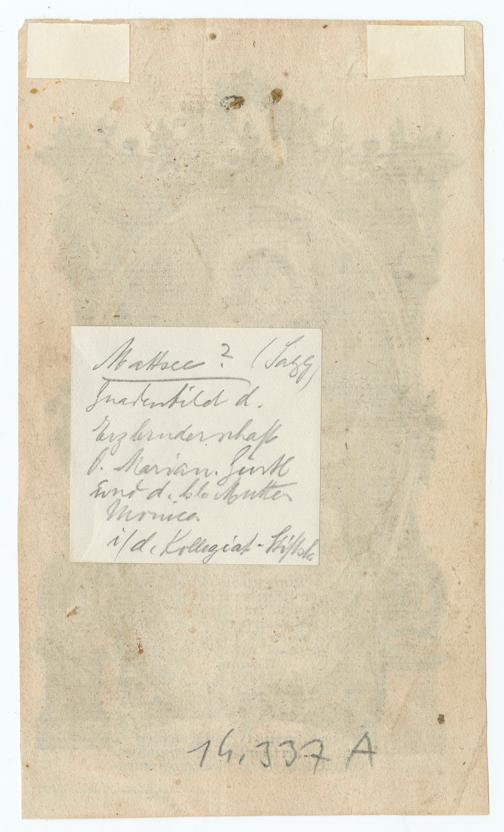 Mattsee? (Salzbg)
Gnadenbild d.
Erzbruderschaft
v. Marian. Gürtl
und d. hl. Mutter
Monica
i/d. Kollegiat-Stiftsk
14.337 A